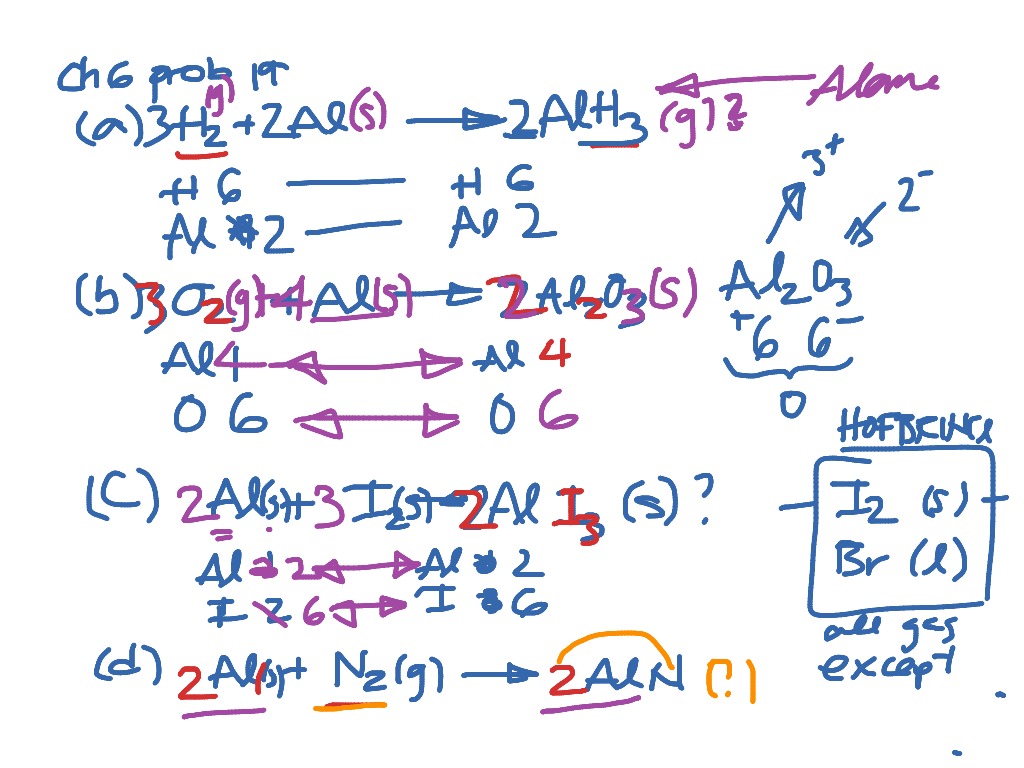 Ch 6 prob 19
(a) 3H₂(g) + 2Al(s) → 2AlH₃ (g)? ← Alane
H 6 — H 6
Al 2 — Al 2
3+
2-
(b) 3O₂(g) + 4Al(s) → 2Al₂O₃(s)
Al₂O₃
+6 6-
0
Al 4 ↔ Al 4
O 6 ↔ O 6
HOFBrINCl
(c) 2Al(s) + 3I₂(s) → 2AlI₃ (s)?
I₂ (s)
Br (l)
Al 2 ↔ Al 2
I 6 ↔ I 6
all gas
except
(d) 2Al(s) + N₂(g) → 2AlN (?)